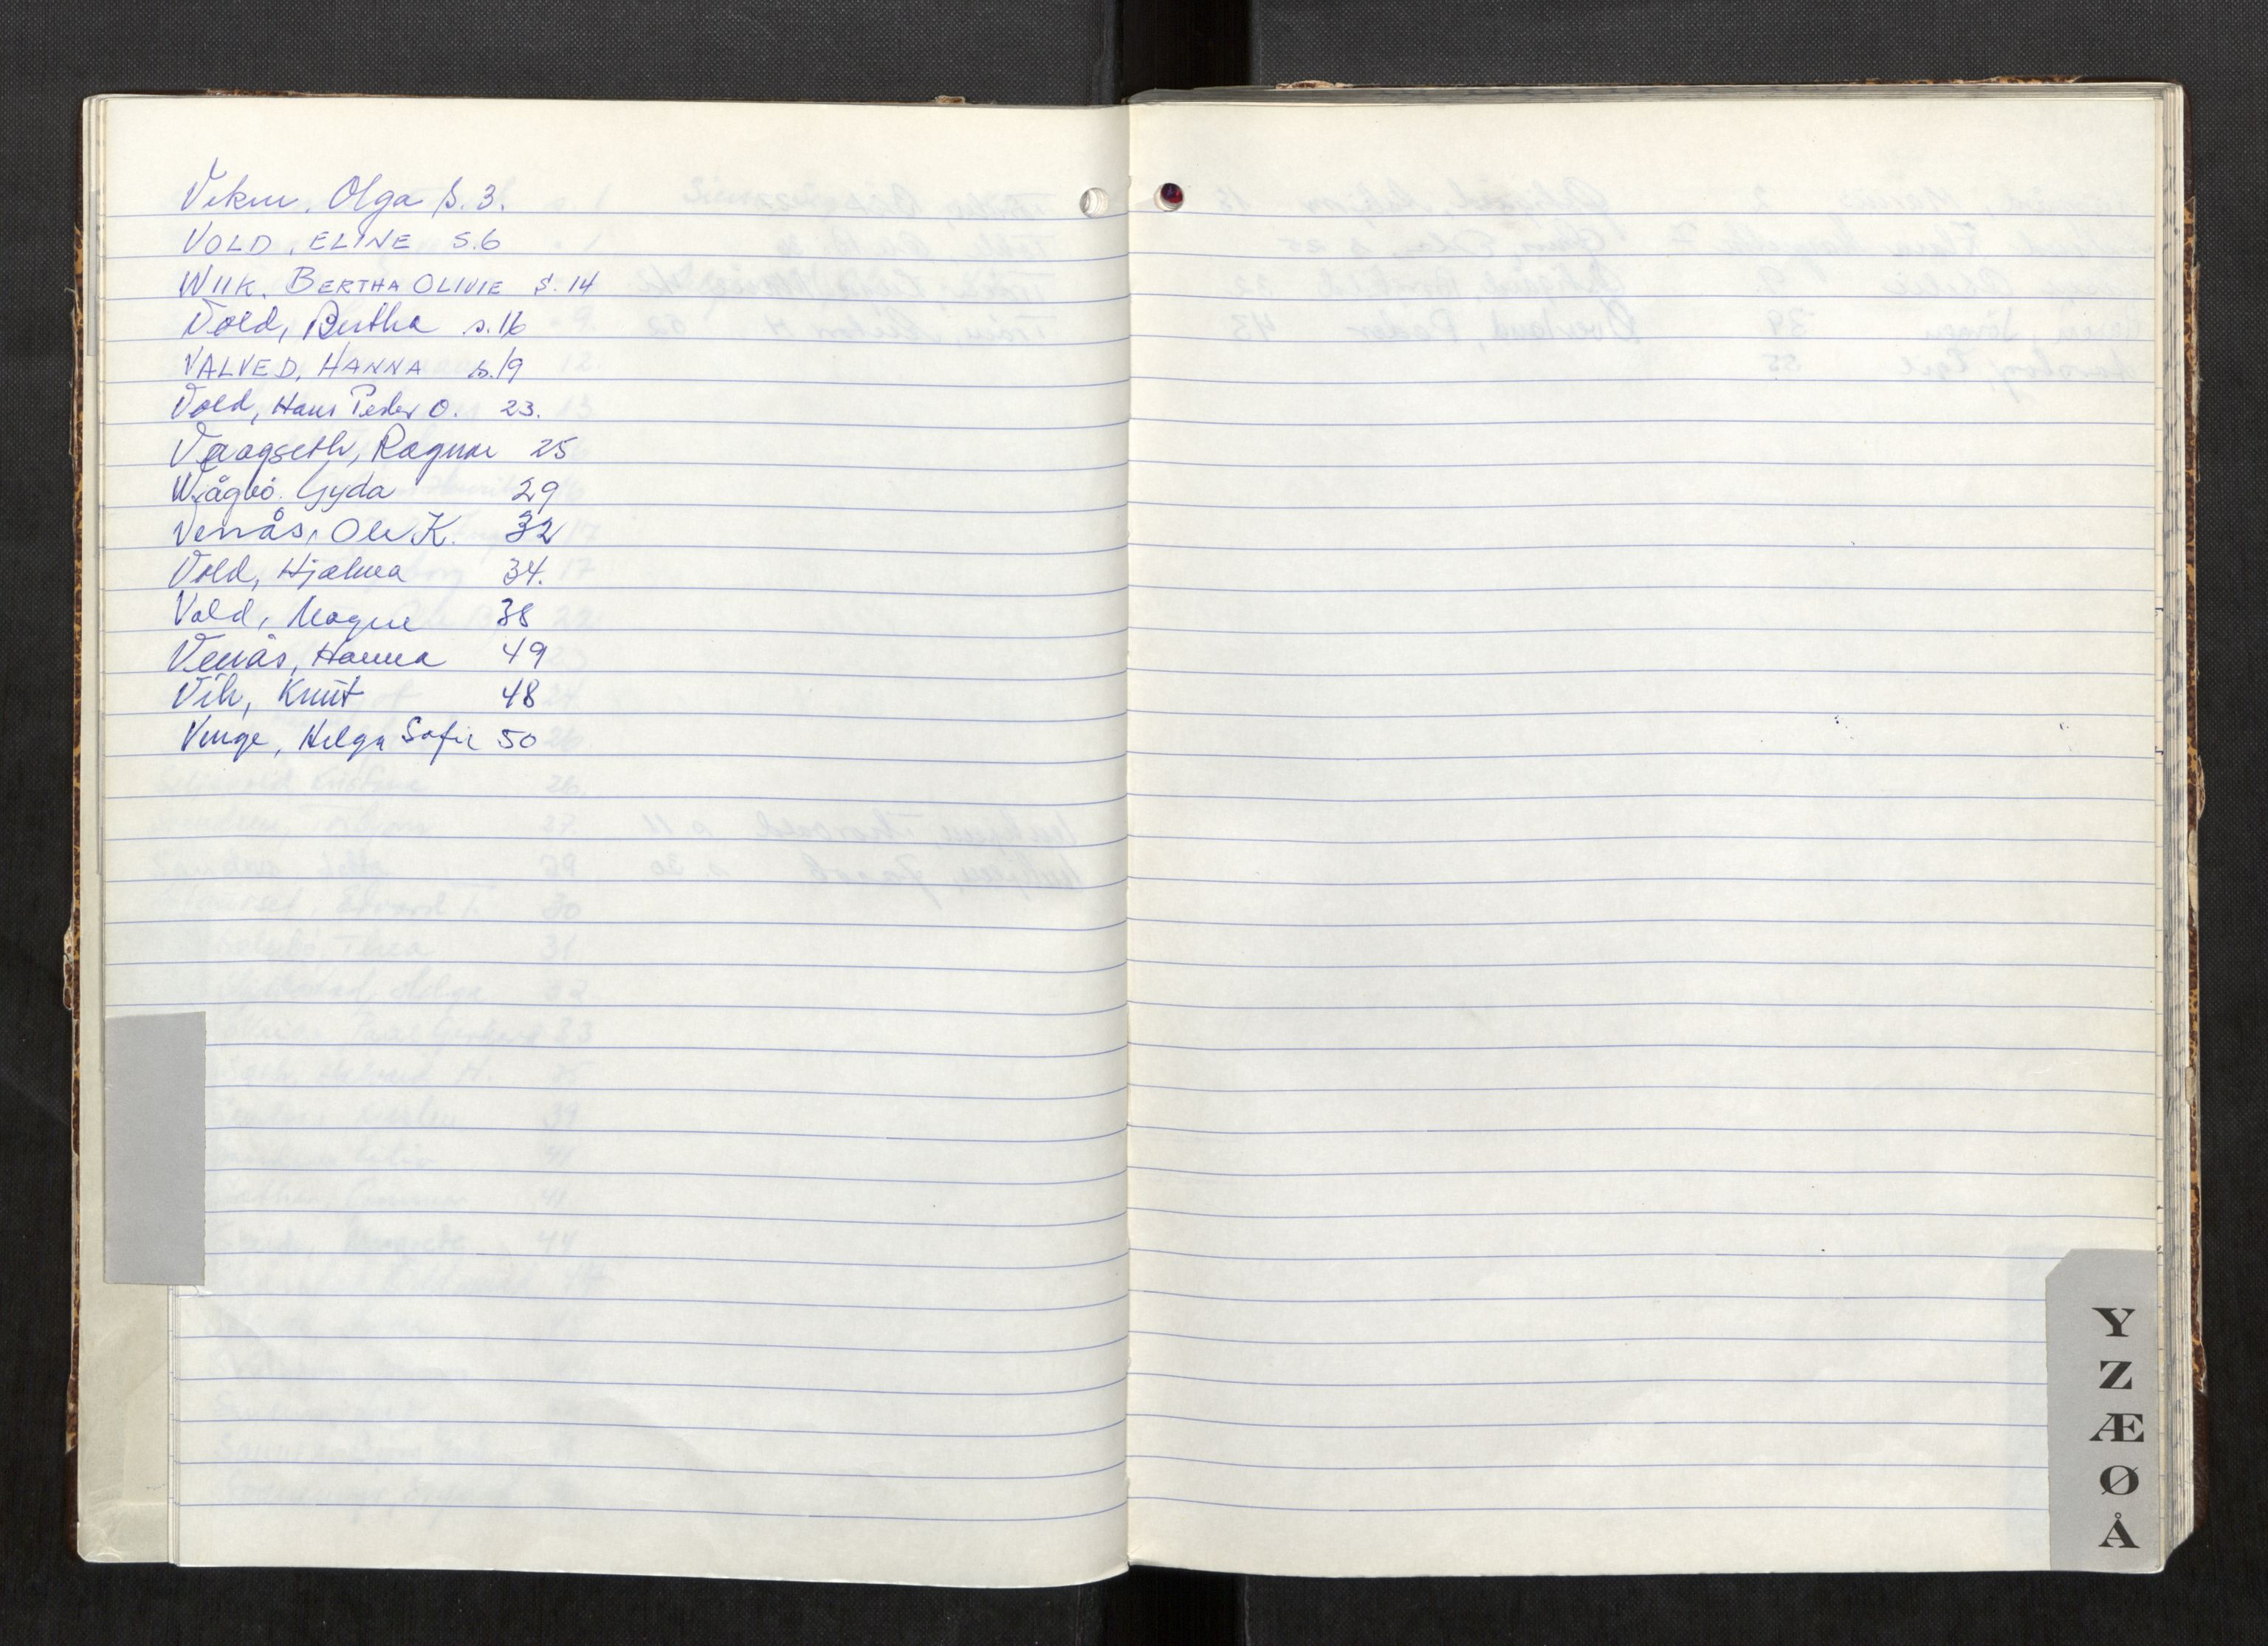 Vekve, Olga s. 3.
VOLD, ELINE S.6
WIIK. BERTHA OLIVIE S. 14
Vold, Bertha s. 16
VALVED, HANNA s. 19
Vold, Hans Peder O. 23.
Vaagseth, Ragnar 25
Wågbø. Gyda 29
Venås, Ole K. 32
Vold, Hjalmar 34.
Vold, Magne 38
Venås, Hanna 49
Vik, Knut 48
Venge, Helga Sofie 50
Y
Z
Æ
Ø
Å